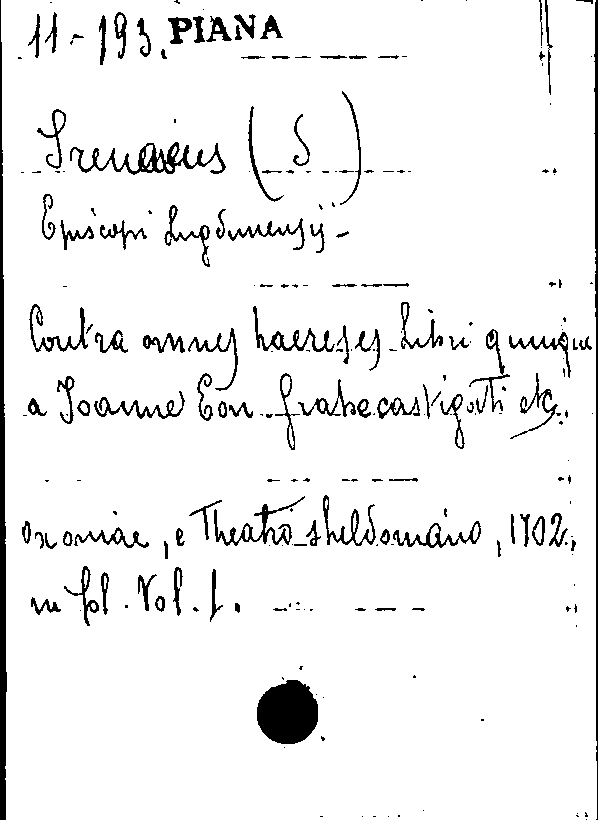 11-193. PIANA
Irenaeus (S)
Episcopi Lugdunensis -
Contra omnes haereses Libri quinque
a Joanne Ern. Grabe castigati etc.
Oxoniae, e Theatro Sheldoniano, 1702,
in fol. Vol. 1.